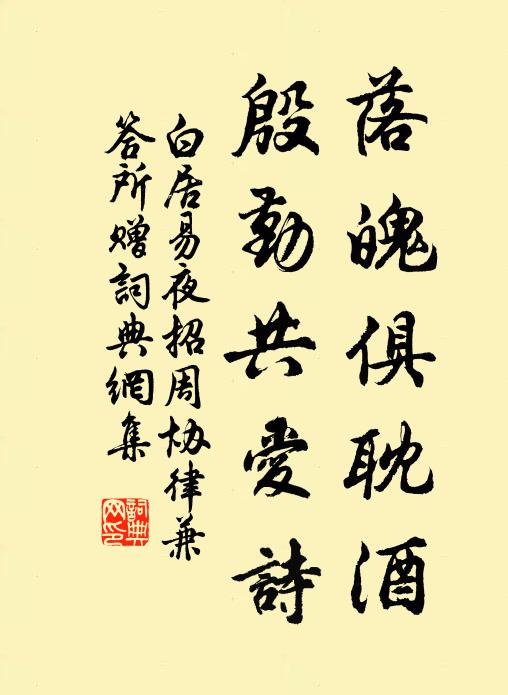 落魄俱耽酒
殷勤共愛詩
白居易夜招周协律兼
答所贈詞典網集
詞典
网印